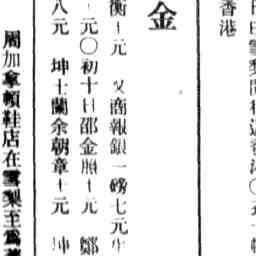 香港
金
衡十元 又商報銀一磅七元半
元〇初十日邵金照十元 鄭
八元 坤士蘭余朝章十元 坤
周加拿頓鞋店在雪梨至爲著